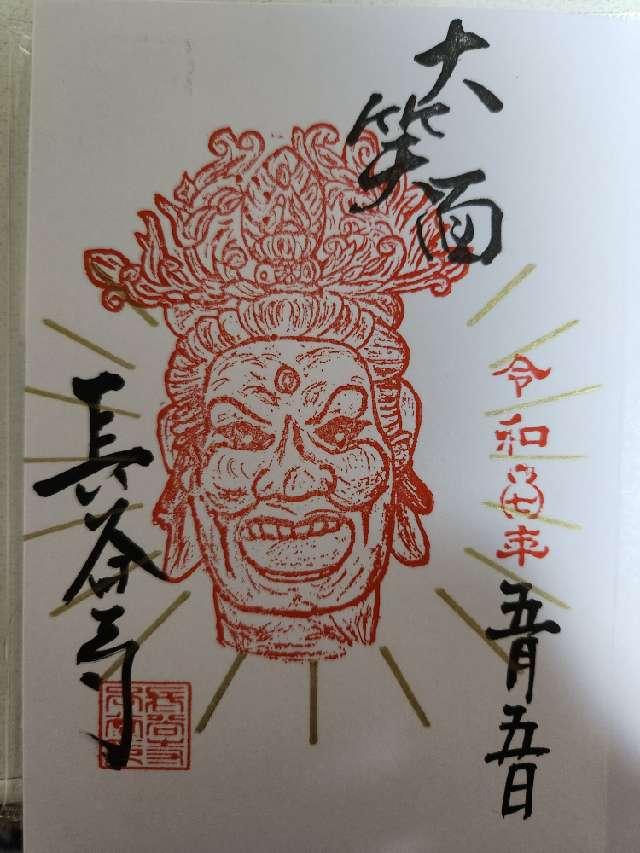 大笑面
令和 年
五月五日
長谷寺